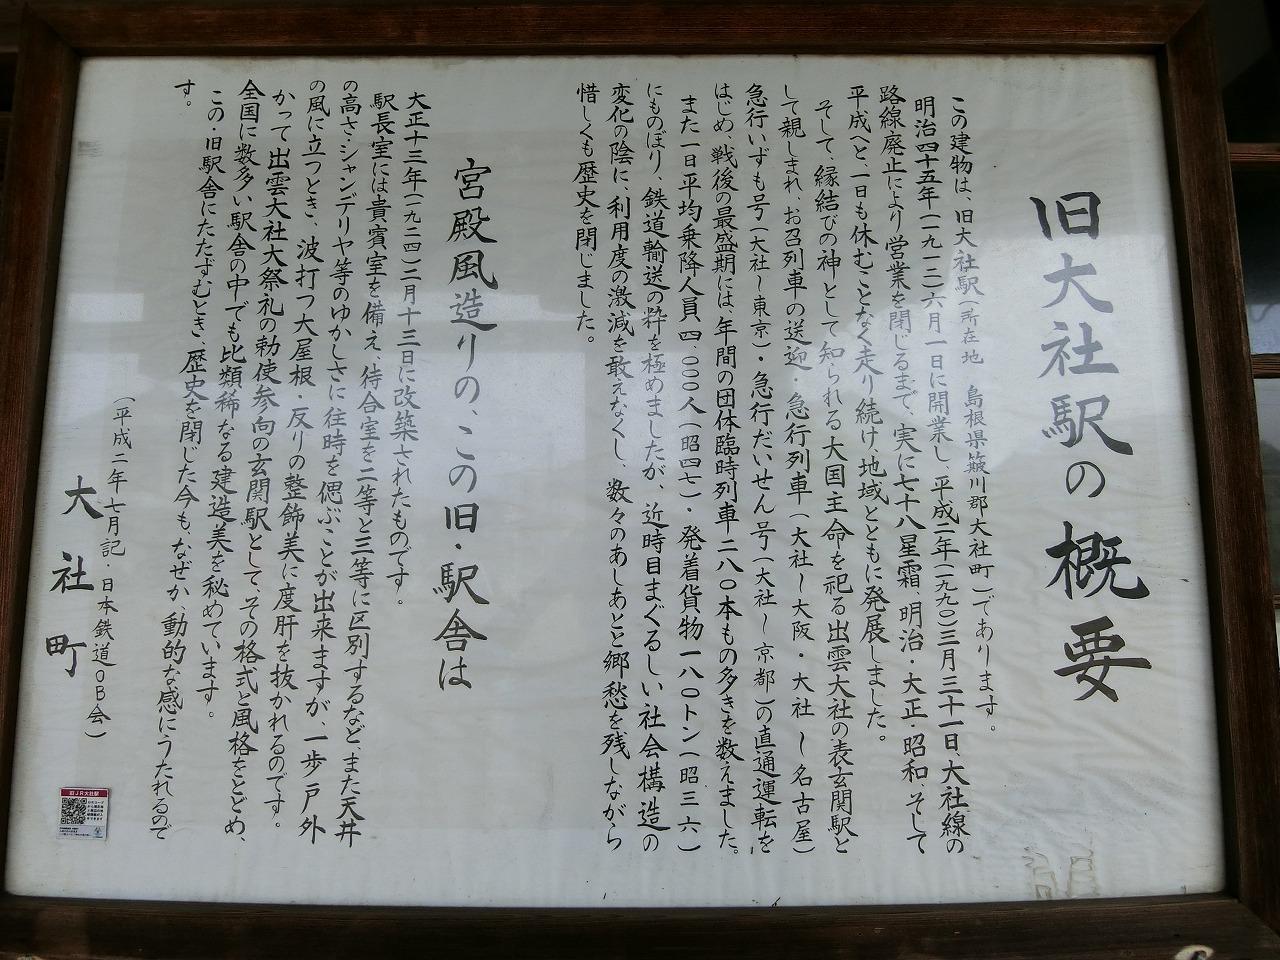 旧大社駅の概要
この建物は、旧大社駅(所在地 島根県簸川郡大社町)であります。
明治四十五年(一九一二)六月一日に開業し、平成二年(一九九〇)三月三十一日、大社線の
路線廃止により営業を閉じるまで、実に七十八星霜、明治・大正・昭和、そして
平成へと、一日も休むことなく走り続け、地域とともに発展しました。
そして、縁結びの神として知られる大国主命を祀る出雲大社の表玄関駅と
して親しまれ、お召列車の送迎・急行列車(大社〜大阪・大社〜名古屋)
急行いずも号(大社〜東京)・急行だいせん号(大社〜京都)の直通運転を
はじめ、戦後の最盛期には、年間の団体臨時列車二八〇本もの多きを数えました。
また一日平均乗降人員四、〇〇〇人(昭四七)・発着貨物一八〇トン(昭三六)
にものぼり、鉄道輸送の粋を極めましたが、近時目まぐるしい社会構造の
変化の陰に、利用度の激減を敢えなくし、数々のあしあとと郷愁を残しながら
惜しくも歴史を閉じました。
宮殿風造りの、この旧・駅舎は
大正十三年(一九二四)二月十三日に改築されたものです。
駅長室には貴賓室を備え、待合室を二等と三等に区別するなど、また天井
の高さ・シャンデリヤ等のゆかしさに往時を偲ぶことが出来ますが、一歩戸外
の風に立つとき、波打つ大屋根・反りの整飾美に度肝を抜かれるのです。
かつて出雲大社大祭礼の勅使参向の玄関駅として、その格式と風格をとどめ、
全国に数多い駅舎の中でも比類稀なる建造美を秘めています。
この・旧駅舎にたたずむとき、歴史を閉じた今も、なぜか、動的な感にうたれるので
す。
(平成二年七月記・日本鉄道OB会)
大社町
旧JR大社駅